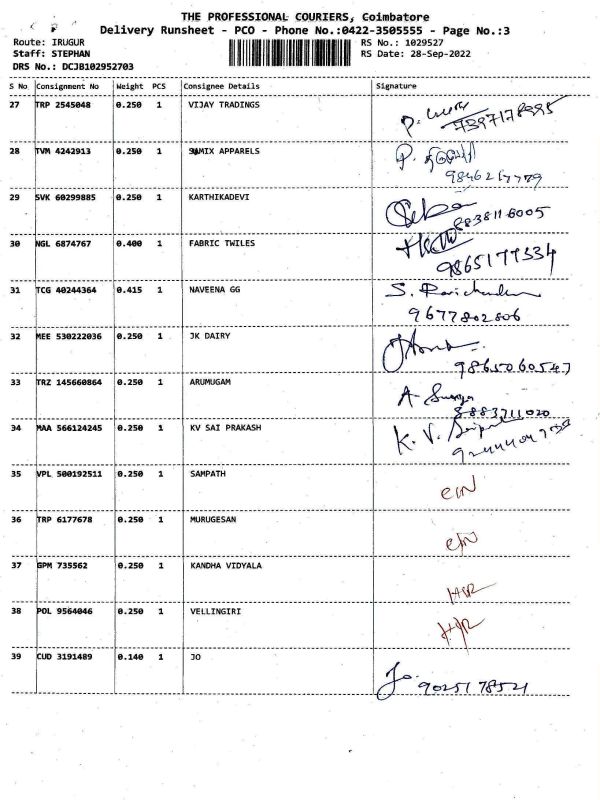 THE PROFESSIONAL COURIERS, Coimbatore
Delivery Runsheet - PCO - Phone No.:0422-3505555 - Page No.:3
Route: IRUGUR RS No.: 1029527
Staff: STEPHAN RS Date: 28-Sep-2022
DRS No.: DCJB102952703
S No Consignment No Weight PCS Consignee Details Signature
27 TRP 2545048 0.250 1 VIJAY TRADINGS
28 TVM 4242913 0.250 1 APPARELS
29 SVK 60299885 0.250 1 KARTHIKADEVI
8838116005
30 NGL 6874767 0.400 1 FABRIC TWILES
9865177334
31 TCG 40244364 0.415 1 NAVEENA GG S.
9677802806
32 MEE 530222036 0.250 1 JK DAIRY
9865060547
33 TRZ 145660864 0.250 1 ARUMUGAM A-
8883711020
34 MAA 566124245 0.250 1 KV SAI PRAKASH K. V.
35 VPL 500192511 0.250 1 SAMPATH
36 TRP 6177678 0.250 1 MURUGESAN
37 GPM 735562 0.250 1 KANDHA VIDYALA
38 POL 9564046 0.250 1 VELLINGIRI
39 CUD 3191489 0.140 1 JO Jo.
9025178521